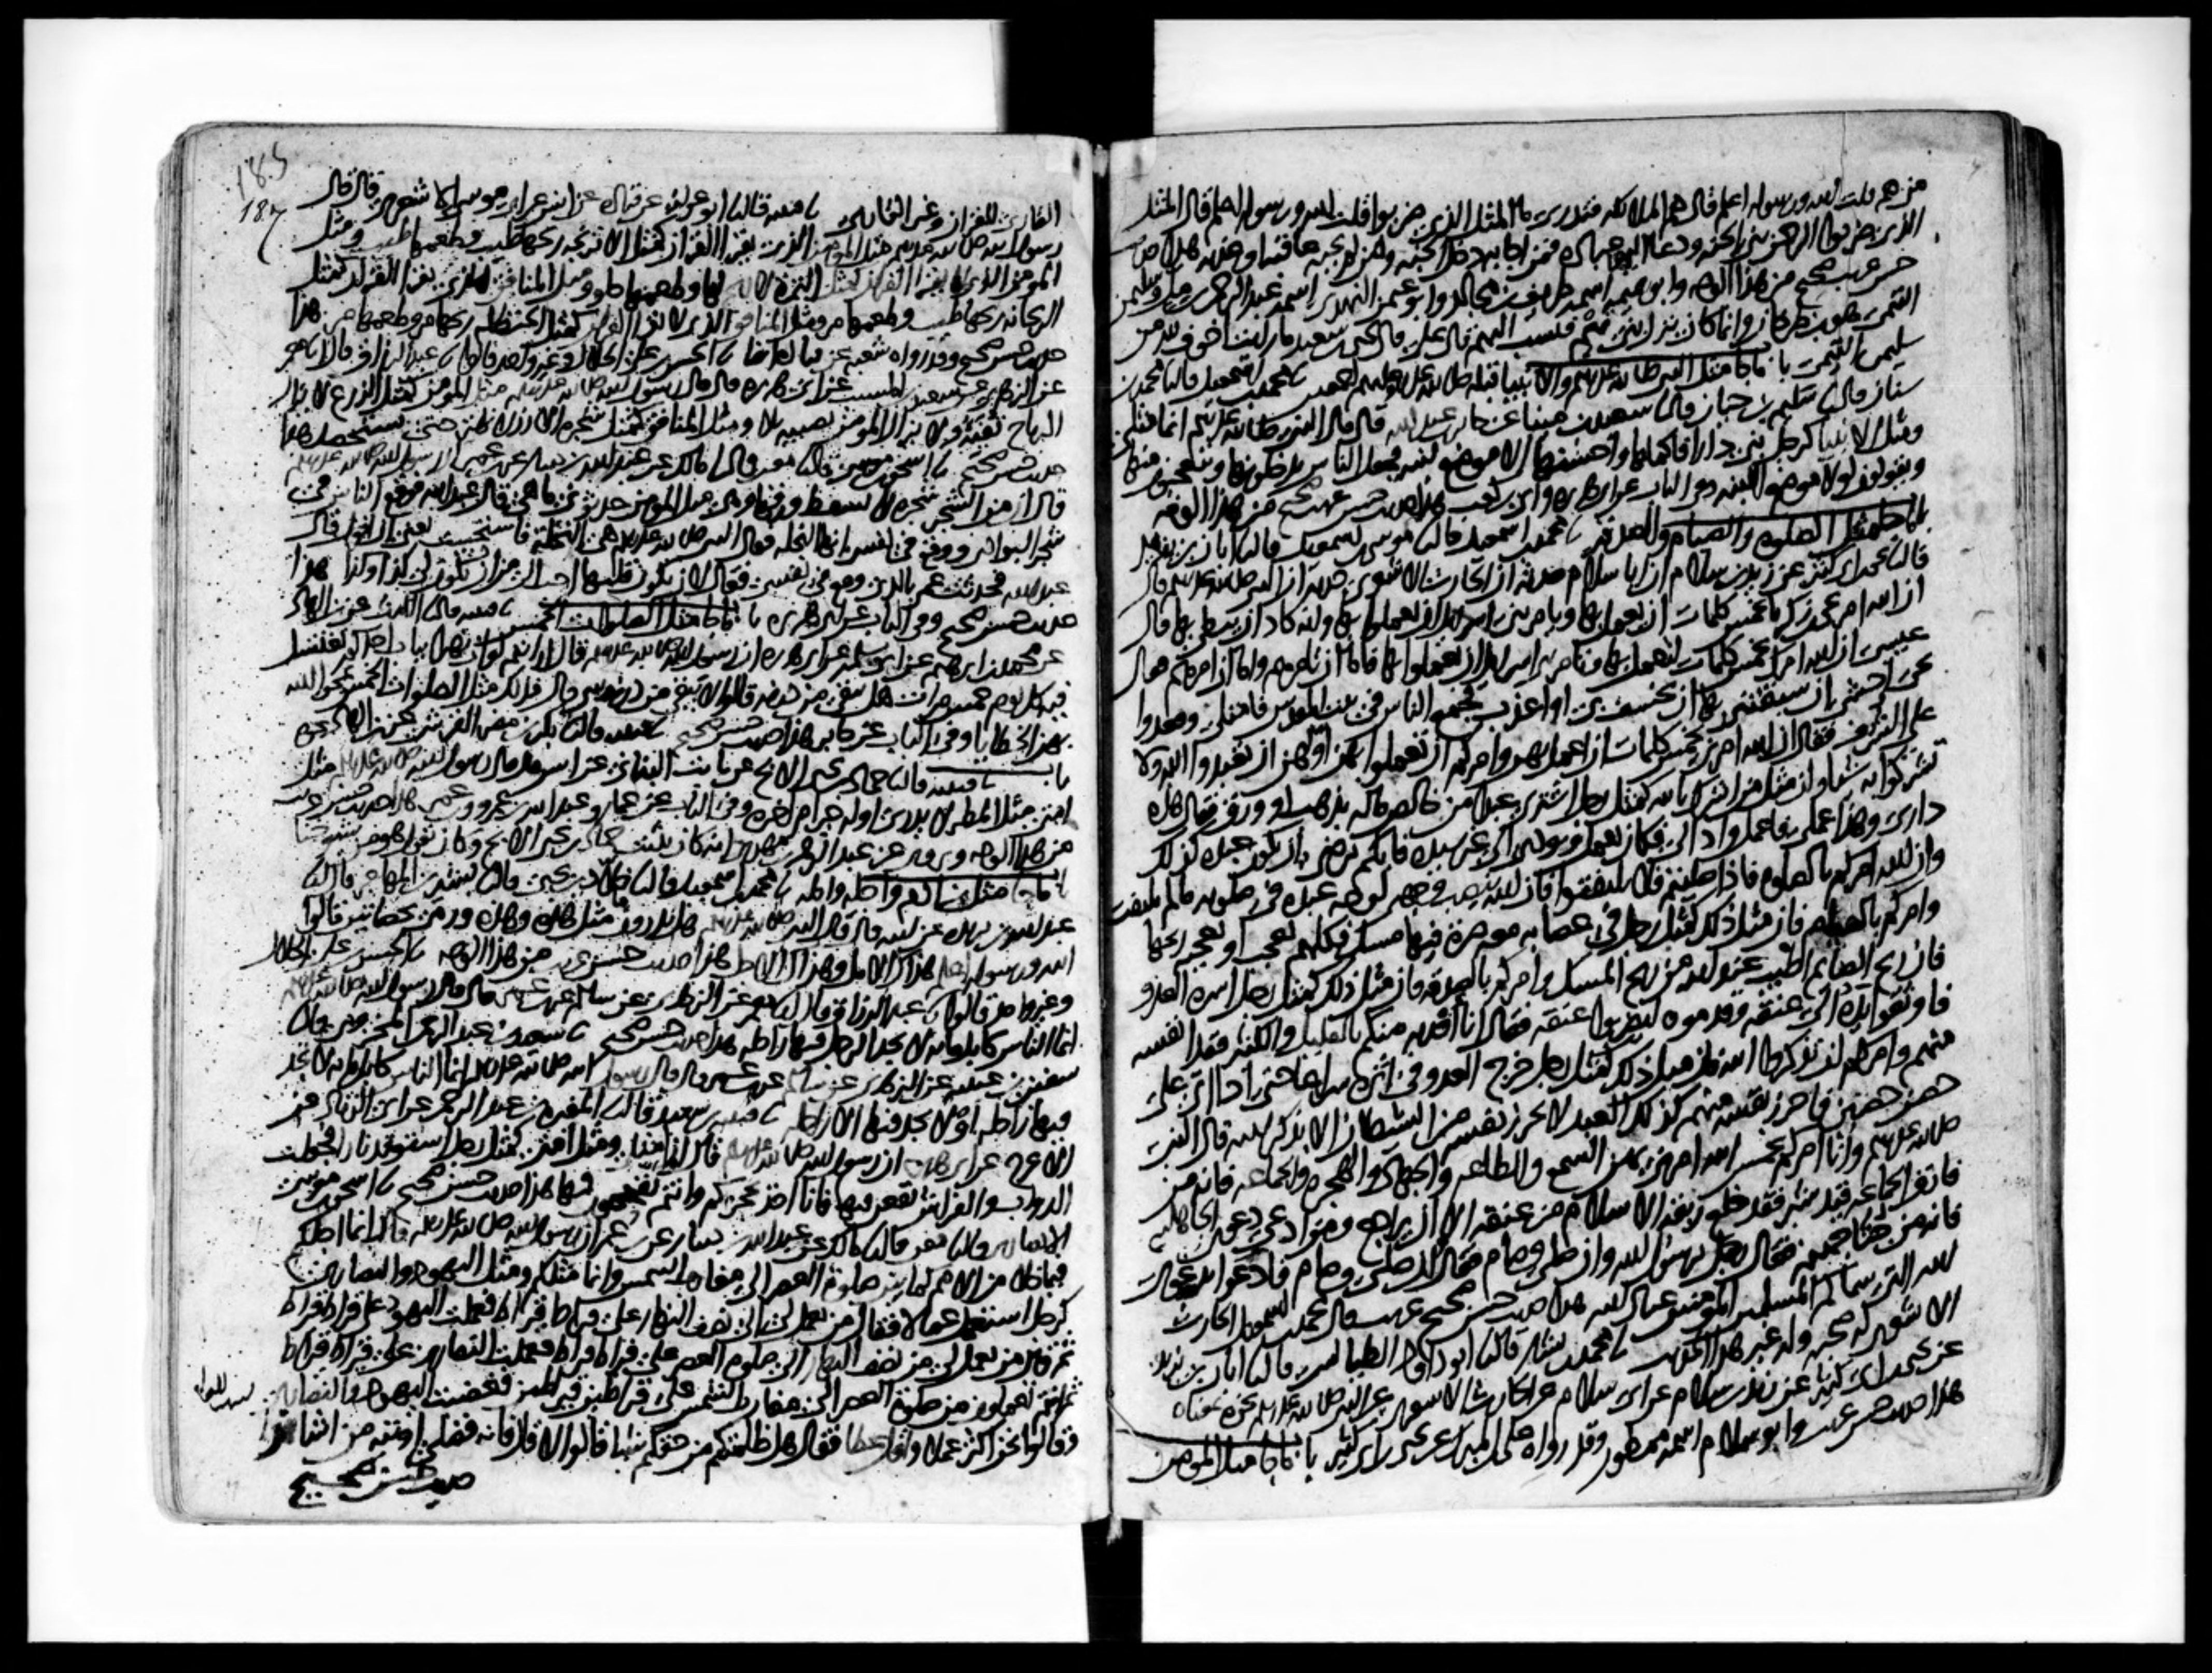 من هم قلت الله ورسوله اعلم قال هم الملائكة فتدري ما المثل الذي ضربوا قلت الله ورسوله اعلم قال المثل
الذي ضربوا الرحمن بنى الجنة ودعا اليها عباده فمن اجابه دخل الجنة ومن لم يجبه عاقبه او عذبه هذا حديث
حسن غريب صحيح من هذا الوجه وابو تميمة اسمه طريف بن مجالد وابو عثمن النهدي اسمه عبد الرحمن بن مل وسليمن
التيمي هو ابن طرخان وانما كان ينزل بني تيم فنسب اليهم قال علي قال يحيى بن سعيد ما رايت اخوف لله من
سليمن التيمي باب ما جا مثل النبي صلى الله عليه وسلم والانبيا قبله صلى الله عليه وعليهم اجمعين نا محمد بن اسمعيل قال نا محمد بن
سنان قال نا سليم بن حيان قال نا سعيد بن مينا عن جابر بن عبد الله قال قال النبي صلى الله عليه وسلم انما مثلي
ومثل الانبيا كرجل بنى دارا فاكملها واحسنها الا موضع لبنة فجعل الناس يدخلونها ويتعجبون منها
ويقولون لولا موضع اللبنة وفي الباب عن ابي هريرة وابي بن كعب هذا حديث حسن غريب صحيح من هذا الوجه
باب ما جا مثل الصلوة والصيام والصدقة نا محمد بن اسمعيل قال نا موسى بن اسمعيل قال نا ابان بن يزيد
قال نا يحيى بن ابي كثير عن زيد بن سلام ان ابا سلام حدثه ان الحارث الاشعري حدثه ان النبي صلى الله عليه وسلم قال
ان الله امر يحيى بن زكريا بخمس كلمات ان يعمل بها ويامر بني اسرائل ان يعملوا بها وانه كاد ان يبطئ بها قال
عيسى ان الله امرك بخمس كلمات لتعمل بها وتامر بني اسرائل ان يعملوا بها فاما ان تامرهم واما ان امرهم فقال
يحيى اخشى ان سبقتني بها ان يخسف بي او اعذب فجمع الناس في بيت المقدس فامتلى وقعدوا
على الشرف فقال ان الله امرني بخمس كلمات ان اعمل بهن وامركم ان تعملوا بهن اولهن ان تعبدوا الله ولا
تشركوا به شيا وان مثل من اشرك بالله كمثل رجل اشترى عبدا من خالص ماله بذهب او ورق فقال هذه
داري وهذا عملي فاعمل واد الي فكان يعمل ويودي الى غير سيده فايكم يرضى ان يكون عبده كذلك
وان الله امركم بالصلوة فاذا صليتم فلا تلتفتوا فان الله ينصب وجهه لوجه عبده في صلوته ما لم يلتفت
وامركم بالصيام فان مثل ذلك كمثل رجل في عصابة معه صرة فيها مسك فكلهم يعجب او يعجبه ريحها
فان ريح الصايم اطيب عند الله من ريح المسك وامركم بالصدقة فان مثل ذلك كمثل رجل اسره العدو
فاوثقوا يده الى عنقه وقدموه ليضربوا عنقه فقال انا افديه منكم بالقليل والكثير ففدا نفسه
منهم وامركم ان تذكروا الله فان مثل ذلك كمثل رجل خرج العدو في اثره سراعا حتى اذا اتى على
حصن حصين فاحرز نفسه منهم كذلك العبد لا يحرز نفسه من الشيطان الا بذكر الله قال النبي
صلى الله عليه وسلم وانا امركم بخمس الله امرني بهن السمع والطاعة والجهاد والهجرة والجماعة فانه من
فارق الجماعة قيد شبر فقد خلع ربقة الاسلام من عنقه الا ان يراجع ومن ادعى دعوى الجاهلية
فانه من جثا جهنم فقال رجل يرسول الله وان صلى وصام فقال وان صلى وصام فادعوا بدعوى
الله الذي سماكم المسلمين المومنين عباد الله هذا حديث حسن صحيح غريب قال محمد بن اسمعيل الحارث
الاشعري له صحبة وله غير هذا الحديث نا محمد بن بشار قال نا ابو داود الطيالسي قال نا ابان بن يزيد
عن يحيى بن ابي كثير عن زيد بن سلام عن ابي سلام عن الحارث الاشعري عن النبي صلى الله عليه وسلم نحوه بمعناه
هذا حديث حسن غريب وابو سلام اسمه ممطور وقد رواه علي بن المبارك عن يحيى بن ابي كثير باب ما جا مثل المومن
185
187
القارئ للقران وغير القارئ نا قتيبة قال نا ابو عوانة عن قتادة عن انس عن ابي موسى الاشعري قال قال
رسول الله صلى الله عليه وسلم مثل المومن الذي يقرا القران كمثل الاترنجة ريحها طيب وطعمها طيب ومثل
المومن الذي لا يقرا القران كمثل التمرة لا ريح لها وطعمها حلو ومثل المنافق الذي يقرا القران كمثل
الريحانة ريحها طيب وطعمها مر ومثل المنافق الذي لا يقرا القران كمثل الحنظلة ريحها مر وطعمها مر هذا
حديث حسن صحيح وقد رواه شعبة عن قتادة ايضا نا الحسن بن علي الخلال وغير واحد قالوا نا عبد الرزاق قال نا معمر
عن الزهري عن سعيد بن المسيب عن ابي هريرة قال قال رسول الله صلى الله عليه وسلم مثل المومن كمثل الزرع لا تزال
الرياح تفيئه ولا يزال المومن يصيبه بلا ومثل المنافق كمثل شجرة الارزة لا تهتز حتى تستحصد هذا
حديث حسن صحيح نا اسحق بن موسى قال نا معن قال نا مالك عن عبد الله بن دينار عن ابن عمر ان رسول الله صلى الله عليه وسلم
قال ان من الشجر شجرة لا يسقط ورقها وهي مثل المومن حدثوني ما هي قال عبد الله فوقع الناس في
شجر البوادي ووقع في نفسي انها النخلة فقال النبي صلى الله عليه وسلم هي النخلة فاستحييت يعني ان اقول قال
عبد الله فحدثت عمر بالذي وقع في نفسي فقال لان تكون قلتها احب الي من ان يكون لي كذا وكذا هذا
حديث حسن صحيح وفي الباب عن ابي هريرة باب ما جا مثل الصلوات الخمس نا قتيبة قال نا الليث عن ابن الهاد
عن محمد بن ابرهيم عن ابي سلمة عن ابي هريرة ان رسول الله صلى الله عليه وسلم قال ارايتم لو ان نهرا بباب احدكم يغتسل
فيه كل يوم خمس مرات هل يبقى من درنه قالوا لا يبقى من درنه شي قال فذلك مثل الصلوات الخمس يمحوا الله
بهن الخطايا وفي الباب عن جابر هذا حديث حسن صحيح نا قتيبة قال نا بكر بن مضر القرشي عن ابن الهاد نحوه
باب نا قتيبة قال نا حماد بن يحيى الابح عن ثابت البناني عن انس قال قال رسول الله صلى الله عليه وسلم مثل
امتي مثل المطر لا يدرى اوله خير ام اخره وفي الباب عن عمار وعبد الله بن عمرو وابن عمر هذا حديث حسن غريب
من هذا الوجه ويروى عن عبد الرحمن بن مهدي انه كان يثبت حماد بن يحيى الابح وكان يقول هو من شيوخنا
باب ما جا مثل ابن ادم واجله وامله نا محمد بن اسمعيل قال نا خلاد بن يحيى قال نا بشير بن المهاجر قال نا
عبد الله بن بريدة عن ابيه قال قال النبي صلى الله عليه وسلم هل تدرون مثل هذه وهذه ورمى بحصاتين قالوا
الله ورسوله اعلم قال هذاك الامل وهذاك الاجل هذا حديث حسن غريب من هذا الوجه نا الحسن بن علي الخلال
وغير واحد قالوا نا عبد الرزاق قال نا معمر عن الزهري عن سالم عن ابن عمر قال قال رسول الله صلى الله عليه وسلم
انما الناس كابل مائة لا يجد الرجل فيها راحلة هذا حديث حسن صحيح نا سعيد بن عبد الرحمن المخزومي قال نا
سفين بن عيينة عن الزهري عن سالم عن ابن عمر قال قال رسول الله صلى الله عليه وسلم انما الناس كابل مائة لا تجد
فيها راحلة او لا تجد فيها الا راحلة نا قتيبة بن سعيد قال نا المغيرة بن عبد الرحمن عن ابي الزناد عن
الاعرج عن ابي هريرة ان رسول الله صلى الله عليه وسلم قال انما مثلي ومثل امتي كمثل رجل استوقد نارا فجعلت
الدواب والفراش يقعن فيها فانا اخذ بحجزكم وانتم تقحمون فيها هذا حديث حسن صحيح نا اسحق بن موسى
الانصاري قال نا معن قال نا مالك عن عبد الله بن دينار عن ابن عمر ان رسول الله صلى الله عليه وسلم قال انما اجلكم
فيما خلا من الامم كما بين صلوة العصر الى مغارب الشمس وانما مثلكم ومثل اليهود والنصارى
كرجل استعمل عمالا فقال من يعمل لي الى نصف النهار على قيراط قيراط فعملت اليهود على قيراط قيراط
ثم قال من يعمل لي من نصف النهار الى صلوة العصر على قيراط قيراط فعملت النصارى على قيراط قيراط
ثم انتم تعملون من صلوة العصر الى مغارب الشمس على قيراطين قيراطين فغضبت اليهود والنصارى
وقالوا نحن اكثر عملا واقل عطا فقال هل ظلمتكم من حقكم شيا قالوا لا قال فانه فضلي اوتيه من اشا هذا
حديث حسن صحيح